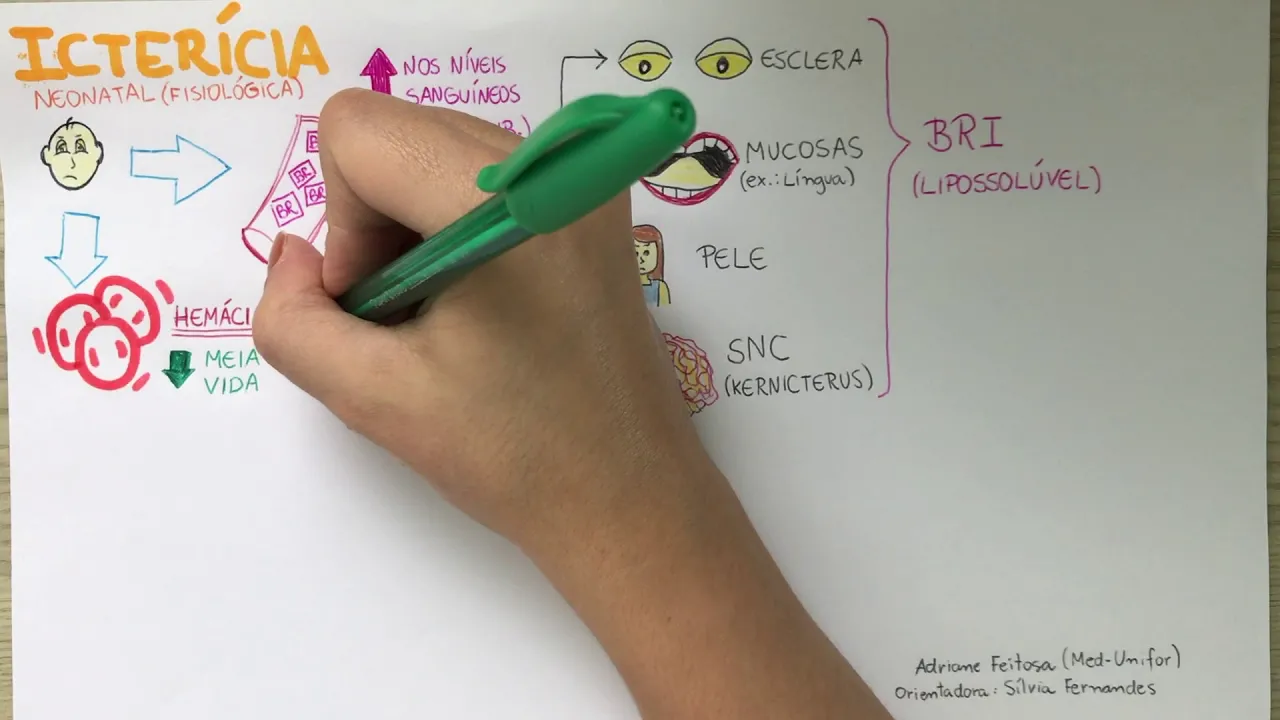 ICTERÍCIA
NEONATAL (FISIOLÓGICA)
NOS NÍVEIS
SANGUÍNEOS
BR
BR
BR
HEMÁCI
MEIA
VIDA
ESCLERA
MUCOSAS
(ex.: Língua)
PELE
SNC
(KERNICTERUS)
BRI
(LIPOSSOLÚVEL)
Adriane Feitosa (Med-Unifor)
Orientadora: Sílvia Fernandes